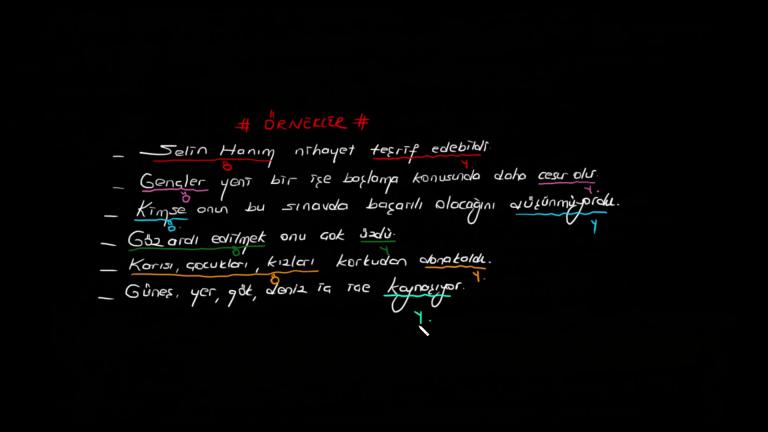 # ÖRNEKLER #
– Selin Hanım nihayet teşrif edebildi.
Ö Y.
– Gençler yeni bir işe başlama konusunda daha cesur olur.
Ö Y.
– Kimse onun bu sınavda başarılı olacağını düşünmüyordu.
Ö. Y
– Göz ardı edilmek onu çok üzdü.
Ö Y
– Karısı, çocukları, kızları korkudan donakaldı.
Ö Y.
– Güneş, yer, gök, deniz iç içe kaynaşıyor.
Y.